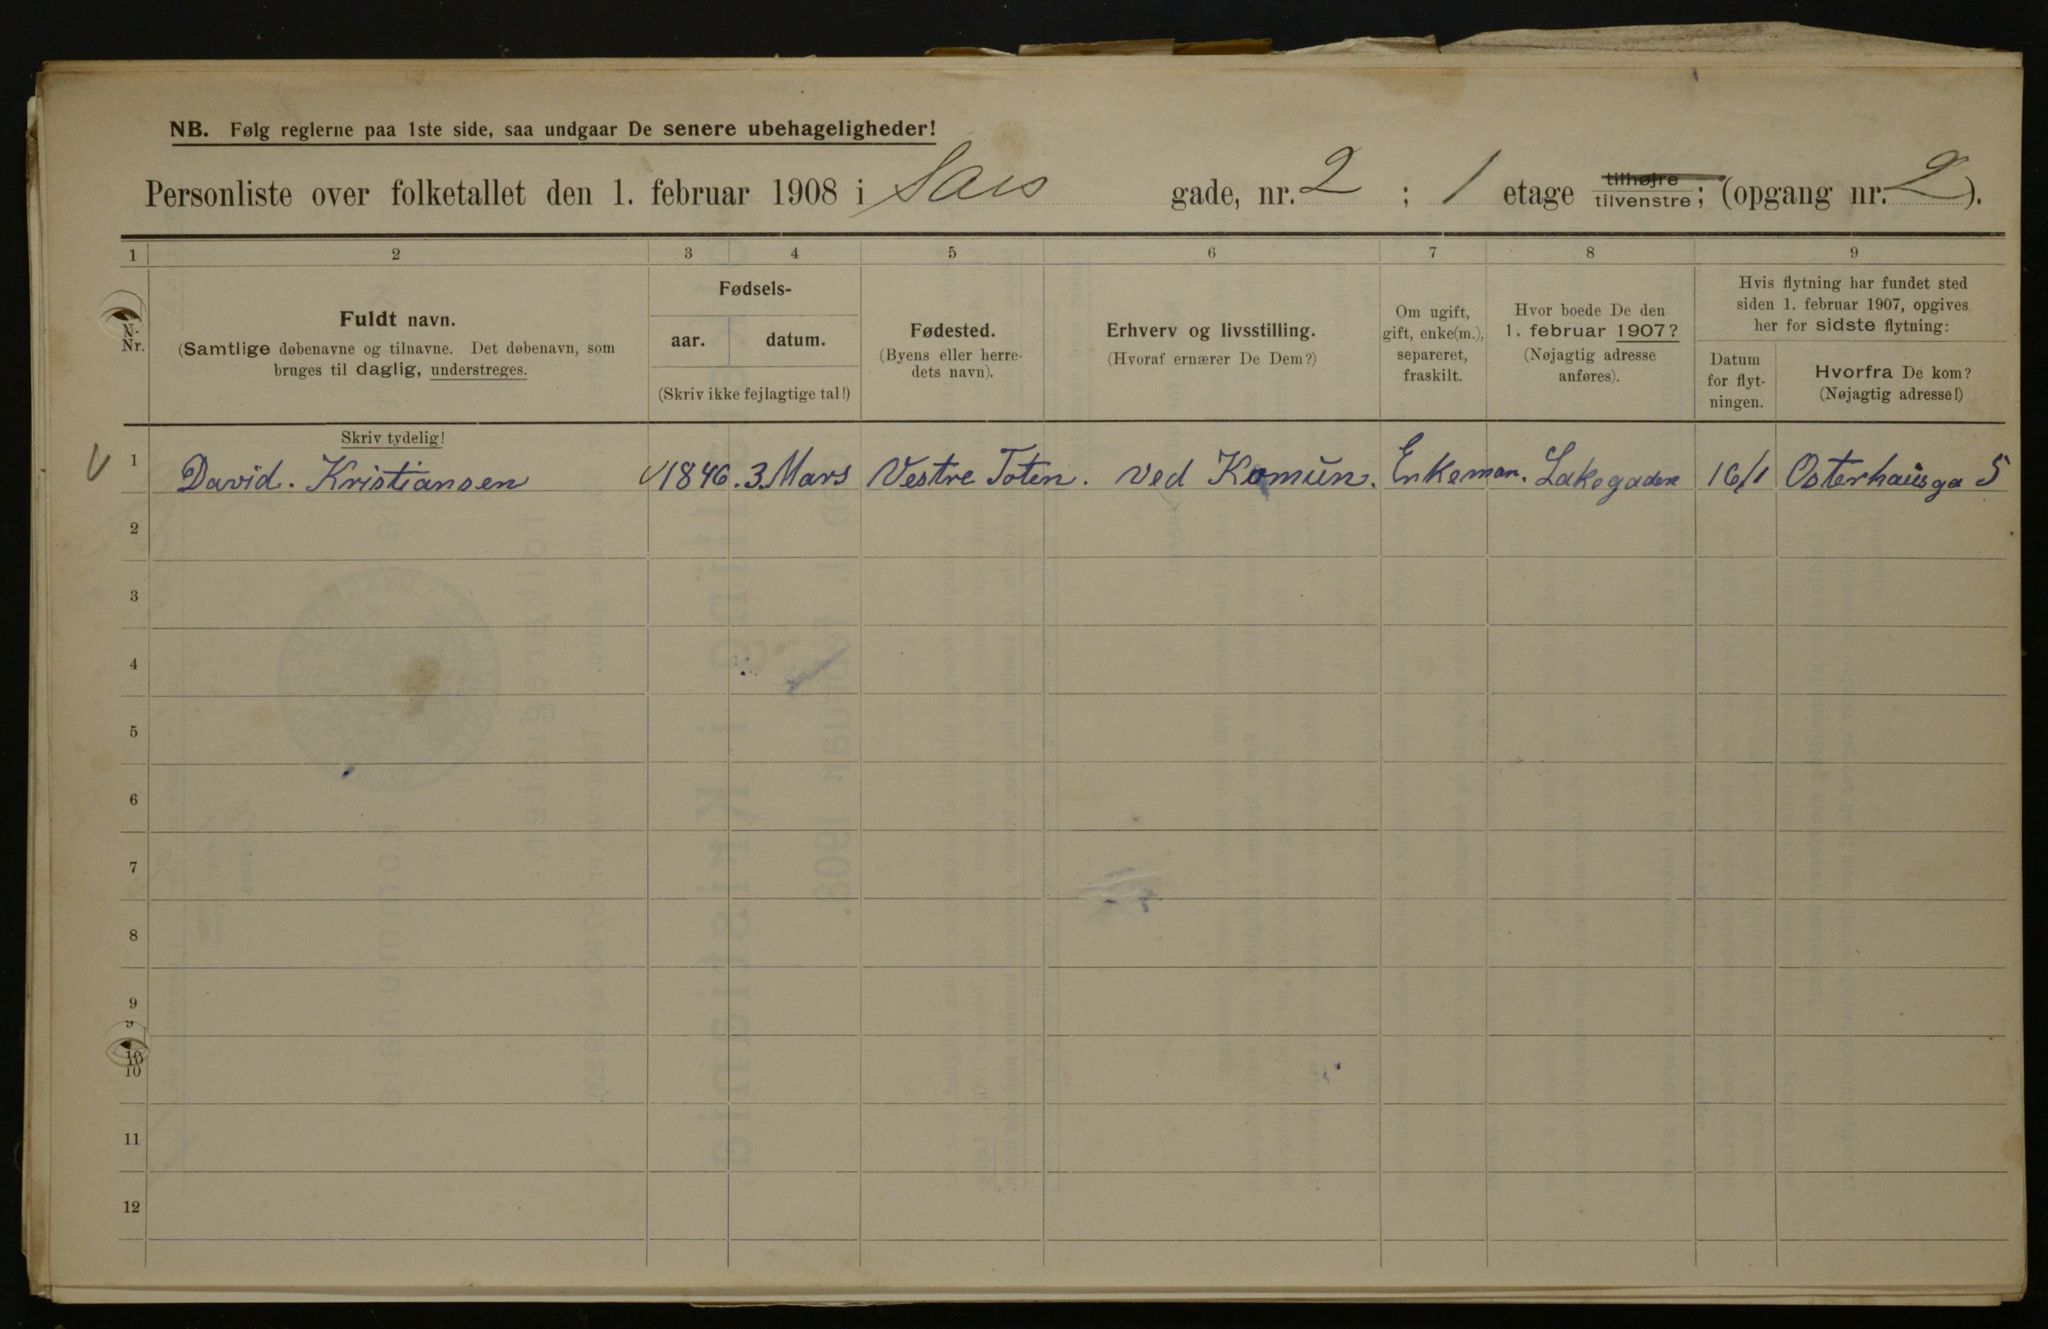 NB. Følg reglerne paa 1ste side, saa undgaar De senere ubehageligheder!
Personliste over folketallet den 1. februar 1908 i Sars gade, nr. 2 ; 1 etage tilhøjre tilvenstre; (opgang nr. 2).
1 2 3 4 5 6 7 8 9
N. Nr.
Fuldt navn.
(Samtlige døbenavne og tilnavne. Det døbenavn, som
bruges til daglig, understreges.
Fødsels-
aar. datum.
(Skriv ikke fejlagtige tal!)
Fødested.
(Byens eller herre-
dets navn).
Erhverv og livsstilling.
(Hvoraf ernærer De Dem?)
Om ugift,
gift, enke(m.),
separeret,
fraskilt.
Hvor boede De den
1. februar 1907?
(Nøjagtig adresse
anføres).
Hvis flytning har fundet sted
siden 1. februar 1907, opgives
her for sidste flytning:
Datum
for flyt-
ningen.
Hvorfra De kom?
(Nøjagtig adresse!)
Skriv tydelig!
1 David. Kristiansen 1846. 3. Mars Vestre Toten. ved Komun. Enkeman. Lakegaden 16/1 Osterhausga 5
2
3
4
5
6
7
8
9
9
10
10
11
12